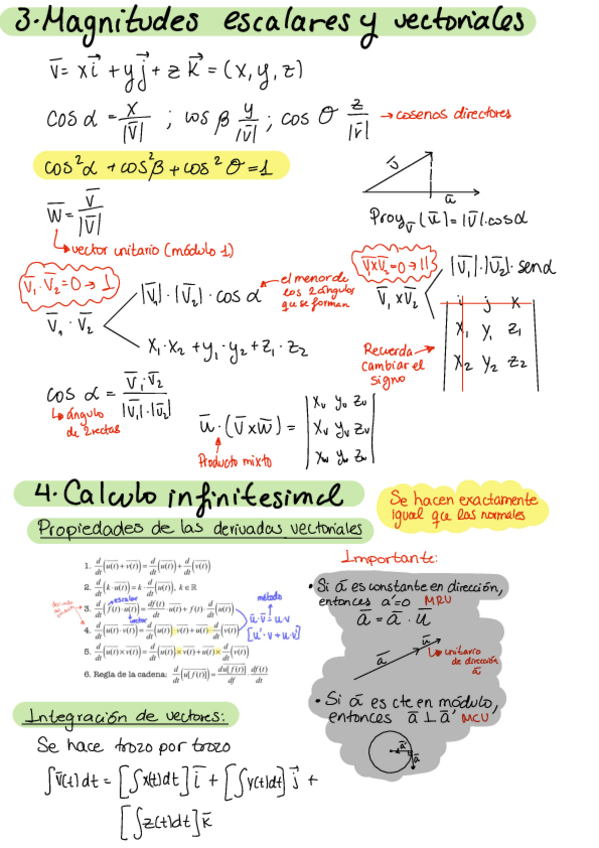 3. Magnitudes escalares y vectoriales
v̄ = xi⃗ + yj⃗ + z k⃗ = (x, y, z)
cos α = x/|v̄| ; cos β y/|v̄| ; cos θ z/|v̄| → cosenos directores
cos²α + cos²β + cos²θ = 1
w̄ = v̄/|v̄|
↳ vector unitario (módulo 1)
v̄
ā
Proy_v̄ (ū) = |v̄|·cosα
v̄₁·v̄₂ = 0 → ⊥
v̄₁ · v̄₂
|v̄₁|·|v̄₂|·cos α
← el menor de
los 2 ángulos
que se forman
x₁·x₂ + y₁·y₂ + z₁·z₂
v̄xv̄₂ = 0 → ||
v̄₁ x v̄₂
|v̄₁|·|v̄₂|·senα
i j k
x₁ y₁ z₁
x₂ y₂ z₂
Recuerda →
cambiar el
signo
cos α = v̄₁·v̄₂/|v̄₁|·|v̄₂|
↳ ángulo
de 2 rectas
ū·(v̄xw̄) = | xᵤ yᵤ zᵤ
xᵥ yᵥ zᵥ
x_w y_w z_w |
Producto mixto
4. Calculo infinitesimal
Se hacen exactamente
igual que las normales
Propiedades de las derivadas vectoriales
1. d/dt (u(t) + v(t)) = d/dt (u(t)) + d/dt (v(t))
2. d/dt (k · u(t)) = k · d/dt (u(t)), k ∈ ℝ
escalar
3. d/dt (f(t) · u(t)) = df(t)/dt · u(t) + f(t) · d/dt (u(t))
vector
4. d/dt (u(t) · v(t)) = d/dt (u(t)) · v(t) + u(t) · d/dt (v(t))
5. d/dt (u(t) × v(t)) = d/dt (u(t)) × v(t) + u(t) × d/dt (v(t))
6. Regla de la cadena: d/dt (u[f(t)]) = du[f(t)]/df · df(t)/dt
método
ū·v̄ = u·v
[u'·v + u·v']
Importante:
• Si ā es constante en dirección,
entonces a'=0 MRU
ā = ā · ū
ū
ā
↳ unitario
de dirección
ā
• Si ā es cte en módulo,
entonces ā ⊥ ā' MCU
ā
ā
Integración de vectores:
Se hace trozo por trozo
∫v̄(t)dt = [∫x(t)dt] i⃗ + [∫y(t)dt] j⃗ +
[∫z(t)dt] k̄